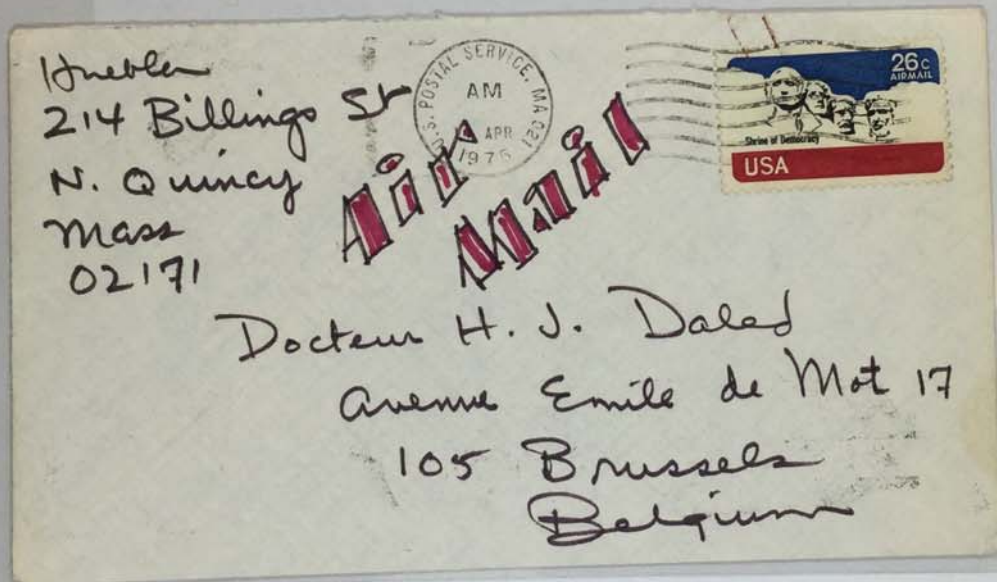 Huebler
214 Billings St
N. Quincy
Mass
02171
U.S. POSTAL SERVICE, MA 021
AM
APR
1975
Air
Mail
26c
AIRMAIL
Shrine of Democracy
USA
Docteur H. J. Daled
Avenue Emile de Mot 17
105 Brussels
Belgium